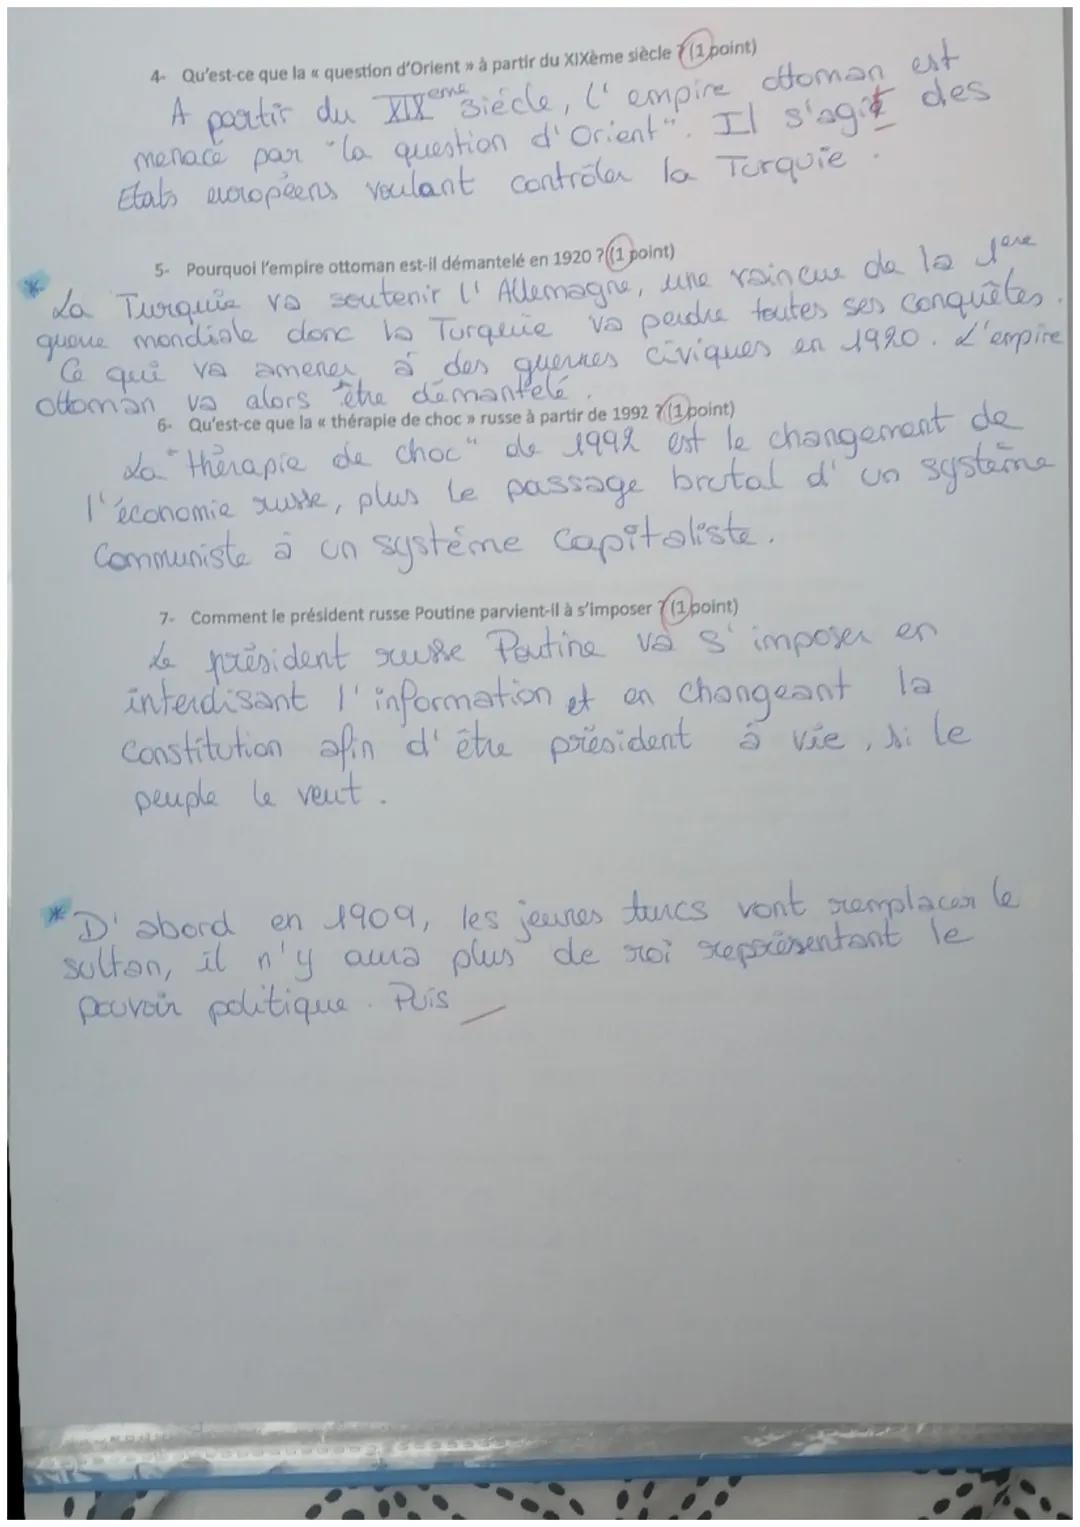 4- Qu'est-ce que la « question d'Orient » à partir du XIXème siècle ? (1 point)
A partir du XIXeme siécle, l'empire ottoman est
menacé par "la question d'Orient". Il s'agit des
Etats européens voulant contrôler la Turquie.
5- Pourquoi l'empire ottoman est-il démantelé en 1920 ? (1 point)
* La Turquie va soutenir l'Allemagne, une vaincue de la 1ere
guerre mondiale donc la Turquie va perdre toutes ses conquêtes.
Ce qui va amener à des guerres civiques en 1920. L'empire
ottoman va alors être démantelé.
6- Qu'est-ce que la « thérapie de choc » russe à partir de 1992 ? (1 point)
La "thérapie de choc" de 1992 est le changement de
l'économie russe, plus le passage brutal d'un système
Communiste à un système Capitaliste.
7- Comment le président russe Poutine parvient-il à s'imposer ? (1 point)
Le président russe Poutine va s'imposer en
interdisant l'information et en changeant la
Constitution afin d'être président à vie, si le
peuple le veut.
* D'abord en 1909, les jeunes turcs vont remplacer le
sultan, il n'y aura plus de roi représentant le
pouvoir politique. Puis